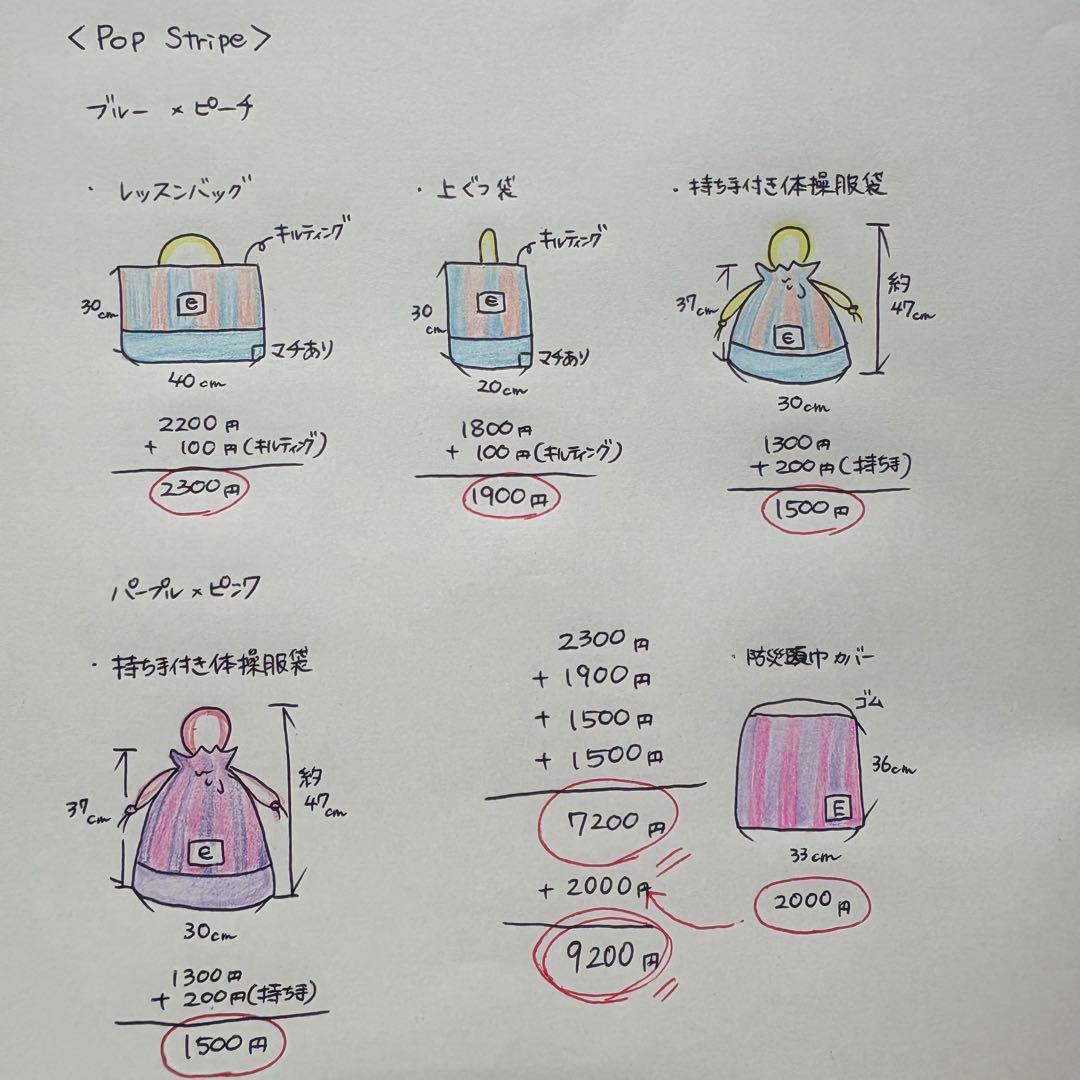 <Pop Stripe>
ブルー × ピーチ
・レッスンバッグ
キルティング
e
30cm
マチあり
40cm
2200円
+ 100円(キルティング)
2300円
・上ぐつ袋
キルティング
e
30cm
マチあり
20cm
1800円
+ 100円(キルティング)
1900円
・持ち手付き体操服袋
37cm
約47cm
e
30cm
1300円
+ 200円(持ち手)
1500円
パープル × ピンク
・持ち手付き体操服袋
37cm
約47cm
e
30cm
1300円
+ 200円(持ち手)
1500円
2300円
+ 1900円
+ 1500円
+ 1500円
7200円
+ 2000円
9200円
・防災頭巾カバー
ゴム
36cm
E
33cm
2000円